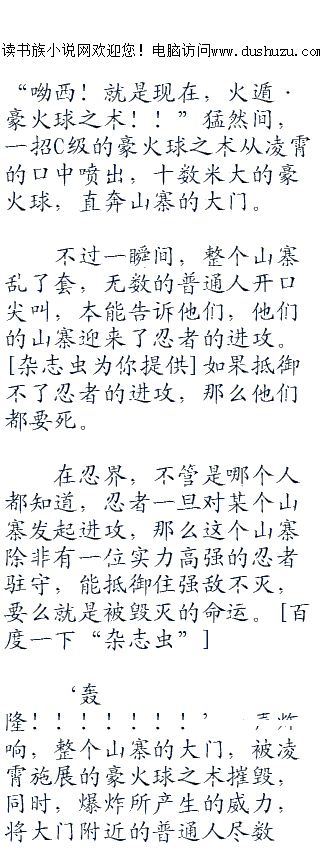 读书族小说网欢迎您！电脑访问www.dushuzu.com
“呦西！就是现在，火遁·
豪火球之术！！”猛然间，
一招C级的豪火球之术从凌霄
的口中喷出，十数米大的豪
火球，直奔山寨的大门。
不过一瞬间，整个山寨
乱了套，无数的普通人开口
尖叫，本能告诉他们，他们
的山寨迎来了忍者的进攻。
[杂志虫为你提供]如果抵御
不了忍者的进攻，那么他们
都要死。
在忍界，不管是哪个人
都知道，忍者一旦对某个山
寨发起进攻，那么这个山寨
除非有一位实力高强的忍者
驻守，能抵御住强敌不灭，
要么就是被毁灭的命运。[百
度一下“杂志虫”]
‘轰
隆！！！！！！！’
响，整个山寨的大门，被凌
霄施展的豪火球之术摧毁，
同时，爆炸所产生的威力，
将大门附近的普通人尽数